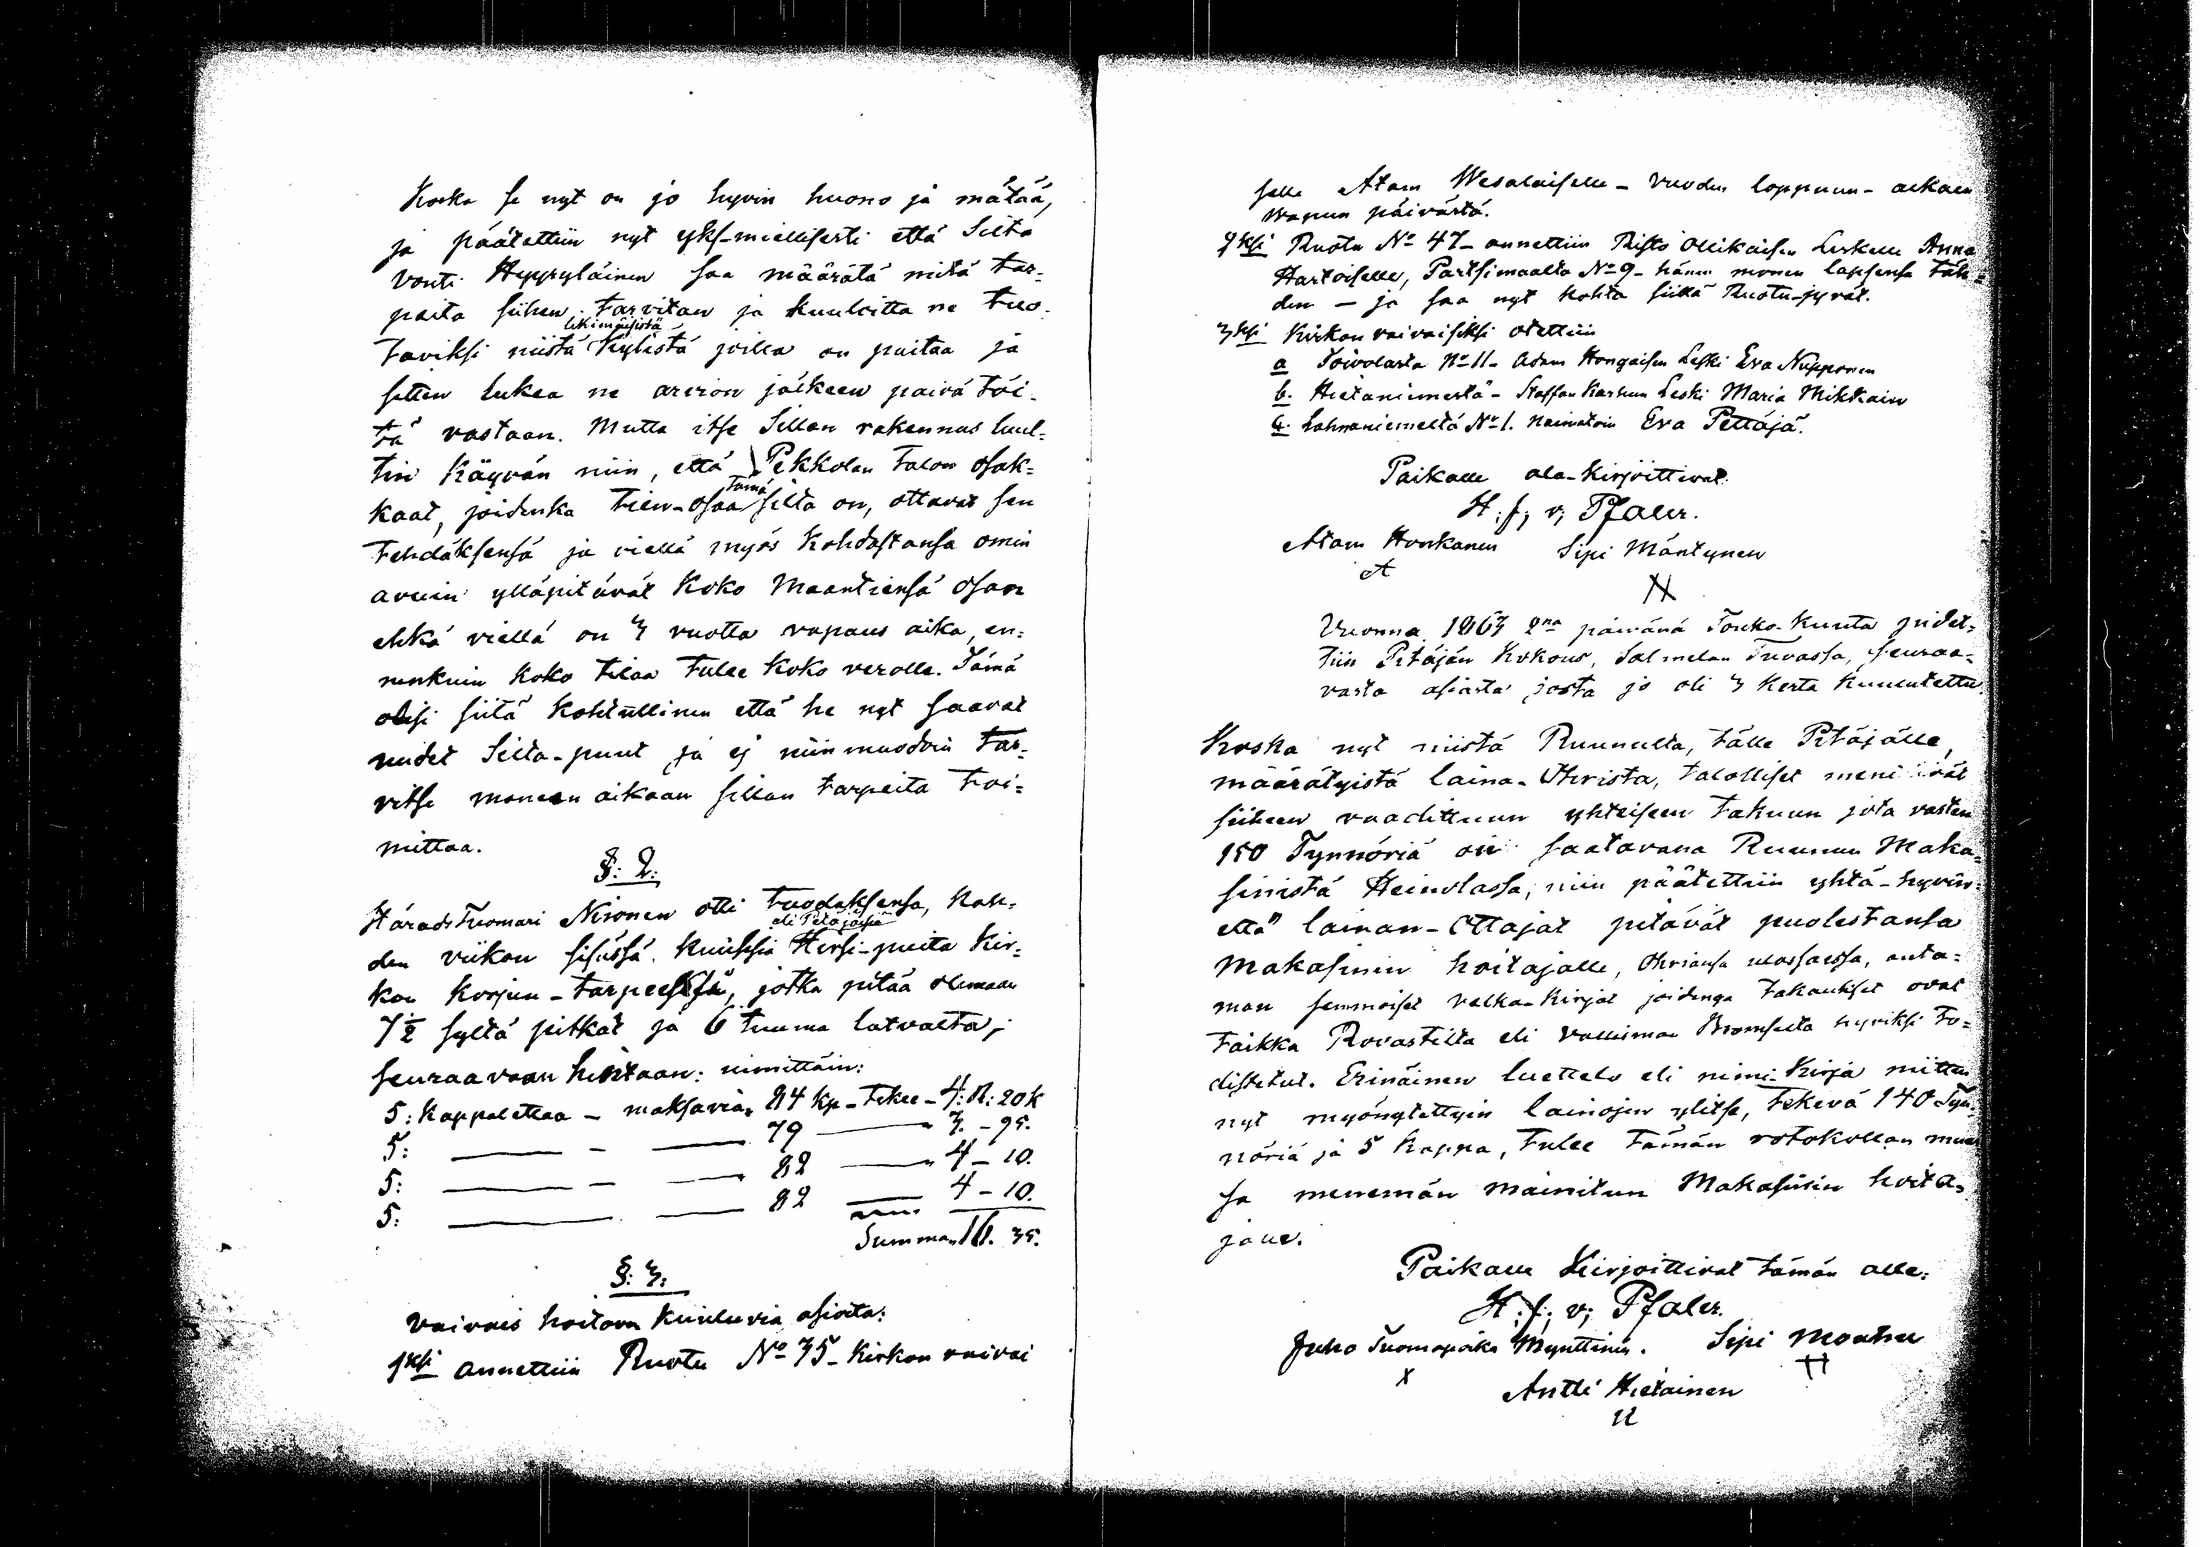 Koska se nyt on jo hyvin huono ja mätää,
ja päätettiin nyt yks-mielisesti että Silta
vouti Hyyryläinen saa määrätä mitä tar-
peita siihen tarvitan ja kuuloitta ne tuo-
likimäisistä
taviksi niistä Kylistä joilla on puitaa ja
sitten lukea ne arvion jälkeen päivä töi-
tä vastaan. Mutta itse Sillan rakennus luul-
tin Käyvän niin, että Pekkolan talon osak-
tämä
kaat, joidenka tien-osaa silta on, ottavat sen
tehdäksensä ja viellä myös kohdastansa omin
avuin ylläpitävät koko Maantiensä osan
ehkä viellä on 3 vuotta vapaus aika, en-
nenkuin koko tilaa tulee koko verolle. Tämä
olisi siitä kohtullinen että he nyt saavat
uudet Silta-puut ja ej niin muodoin tar-
vitse moneen aikaan sillan tarpeita toi-
mittaa.
§: 2:
HäradsTuomari Nironen otti tuodaksensa, kah-
eli Petäjäisiä
den viikon sisässä. kuusisia Hirsi-puita Kir-
kon korjun-tarpeeksi, jotka pitää oleman
7½ syltä pitkät ja 6 tuuma latvasta;
seuraavaan hintaan: nimittäin:
5: Kappalettaa - maksavia 84 kp - tekee - 4: R: 20 k
5: — - — 79 — 3. - 95.
5: — - — 82 — 4 - 10.
5: — — 82 — 4 - 10.
Summa 16. 35.
§: 3:
Vaivais hoitoon kuuluvia asioita:
1ksi annettiin Ruotu No 35 - Kirkon vaivai
selle Atam Wesalaiselle - vuoden loppuun - aekaen
Wapun päivästä.
2ksi Ruotu No 47 - annettiin Risto Ollikaisen Leskelle Anna
Hartoiselle, Partsimaalta No 9 - hänen monen lapsensa täh-
den - ja saa nyt kohta siitä Ruotu-jyvät.
3ksi Kirkon vaivaiseksi otettiin
a Toivolasta No 11 - Adam Hongaisen Leski Eva Nupponen
b. Hietaniemestä - Staffan Karhun Leski Maria Mikkain
c. Lahnaniemeltä No 1. naimatoin Eva Pettäjä.
Paikalle ala-kirjoittivat
H: f; v; Pfaler.
Atam Honkanen Sipi Mäntynen
A
Vuonna 1863 2na päivänä Touko-kuuta pidet-
tiin Pitäjän Kokous, Salmelan Tuvassa, seuraa-
vasta asiasta josta jo oli 3 kerta kuuulutettu
Koska nyt niistä Ruunulta, tälle Pitäjälle,
määrätyistä laina-Ohrista, talolliset menivät
siiheen vaadittuun yhteiseen takuun jota vasten
150 Tynnöriä oli saatavana Ruunun Maka-
sinistä Heinolassa, niin päätettiin yhtä-hyvin
että lainan-Ottajat pitävät puolestansa
Makasinin hoitajalle, Ohriansa ulossaessa, anta-
man semmoiset velka-kirjat joidenga takaukset ovat
taikka Rovastilta eli Vallisman Bromsilta hyviksi to-
distetut. Erinäinen luettelo eli nimi-kirja miten
nyt myönytettyin lainojen ylitse, tekevä 140 Tyn-
nöriä ja 5 kappa, tulee tämän rotokollan muas
sa menemän mainitun Makasinin hoita-
jalle.
Paikalle Kirjoittivat tämän alle:
H: f; v; Pfaler.
Juho Tuomapoika Mynttinen. Sipi Montin
X
Antti Hietainen